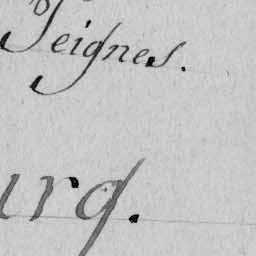 Seignes.
urg.